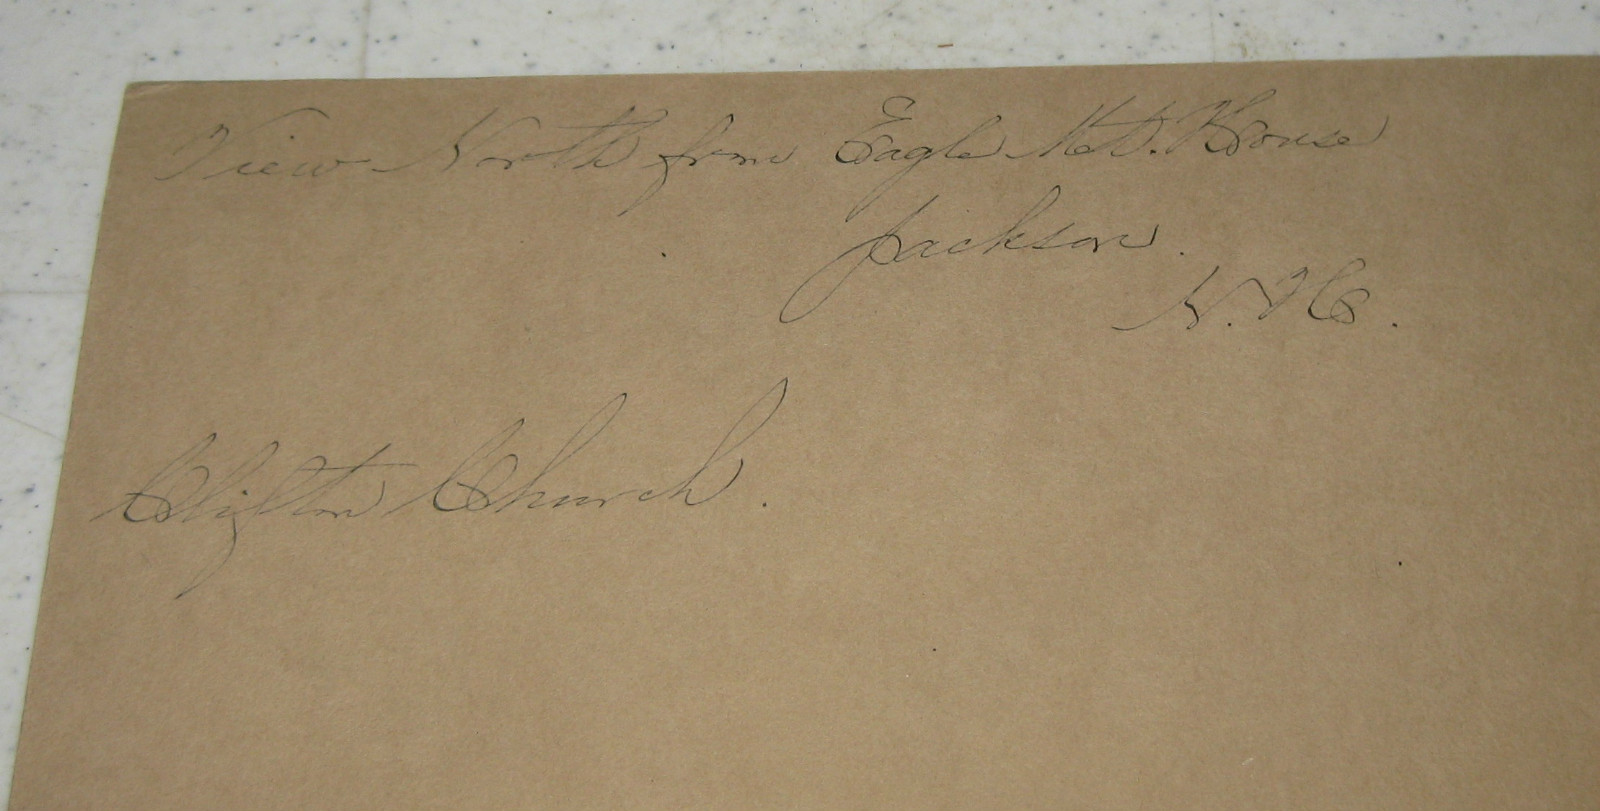 View North from Eagle Mt. House
Jackson.
N. H.
Clifton Church.